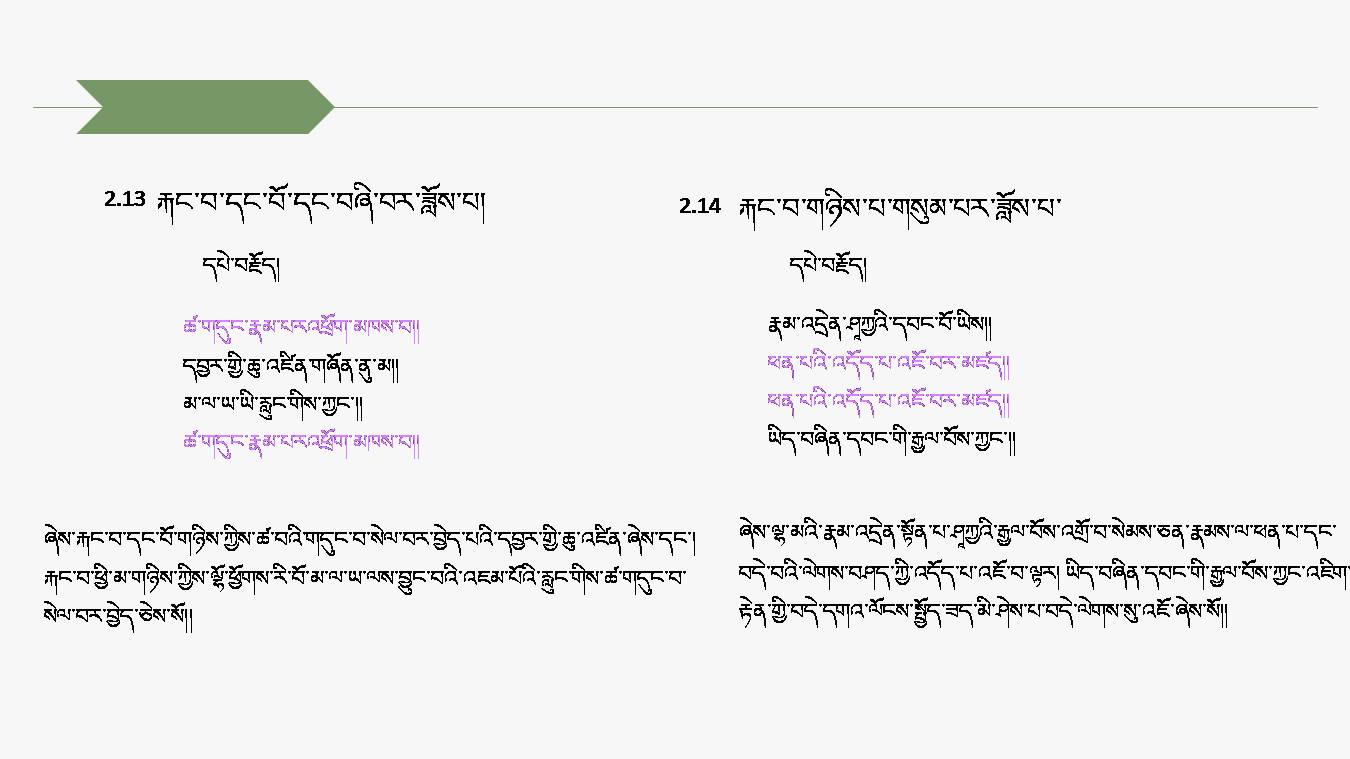 2.13 རྐང་བ་དང་བོ་དང་བཞི་བར་ཟློས་པ།
དཔེ་བརྗོད།
ཚ་གདུང་རྣམ་པར་འཕྲོག་མཁས་བ།།
དབྱར་གྱི་ཆུ་འཛིན་གཞོན་ནུ་མ།།
མ་ལ་ཡ་ཡི་རླུང་གིས་ཀྱང་།།
ཚ་གདུང་རྣམ་པར་འཕྲོག་མཁས་བ།།
ཞེས་རྐང་བ་དང་བོ་གཉིས་ཀྱིས་ཚ་བའི་གདུང་བ་སེལ་བར་བྱེད་པའི་དབྱར་གྱི་ཆུ་འཛིན་ཞེས་དང་།
རྐང་བ་ཕྱི་མ་གཉིས་ཀྱིས་ལྷོ་ཕྱོགས་རི་བོ་མ་ལ་ཡ་ལས་བྱུང་བའི་འཇམ་པོའི་རླུང་གིས་ཚ་གདུང་བ་
སེལ་བར་བྱེད་ཅེས་སོ།།
2.14 རྐང་བ་གཉིས་པ་གསུམ་པར་ཟློས་པ་
དཔེ་བརྗོད།
རྣམ་འདྲེན་ཤཱཀྱའི་དབང་བོ་ཡིས།།
ཕན་པའི་འདོད་པ་འཇོ་བར་མཛད།།
ཕན་པའི་འདོད་པ་འཇོ་བར་མཛད།།
ཡིད་བཞིན་དབང་གི་རྒྱལ་བོས་ཀྱང་།།
ཞེས་ལྷ་མའི་རྣམ་འདྲེན་སྟོན་པ་ཤཱཀྱའི་རྒྱལ་བོས་འགྲོ་བ་སེམས་ཅན་རྣམས་ལ་ཕན་པ་དང་
བདེ་བའི་ལེགས་བཤད་ཀྱི་འདོད་པ་འཇོ་བ་ལྟར། ཡིད་བཞིན་དབང་གི་རྒྱལ་བོས་ཀྱང་འཇིག་
རྟེན་གྱི་བདེ་དགའ་ལོངས་སྤྱོད་ཟད་མི་ཤེས་པ་བདེ་ལེགས་སུ་འཇོ་ཞེས་སོ།།